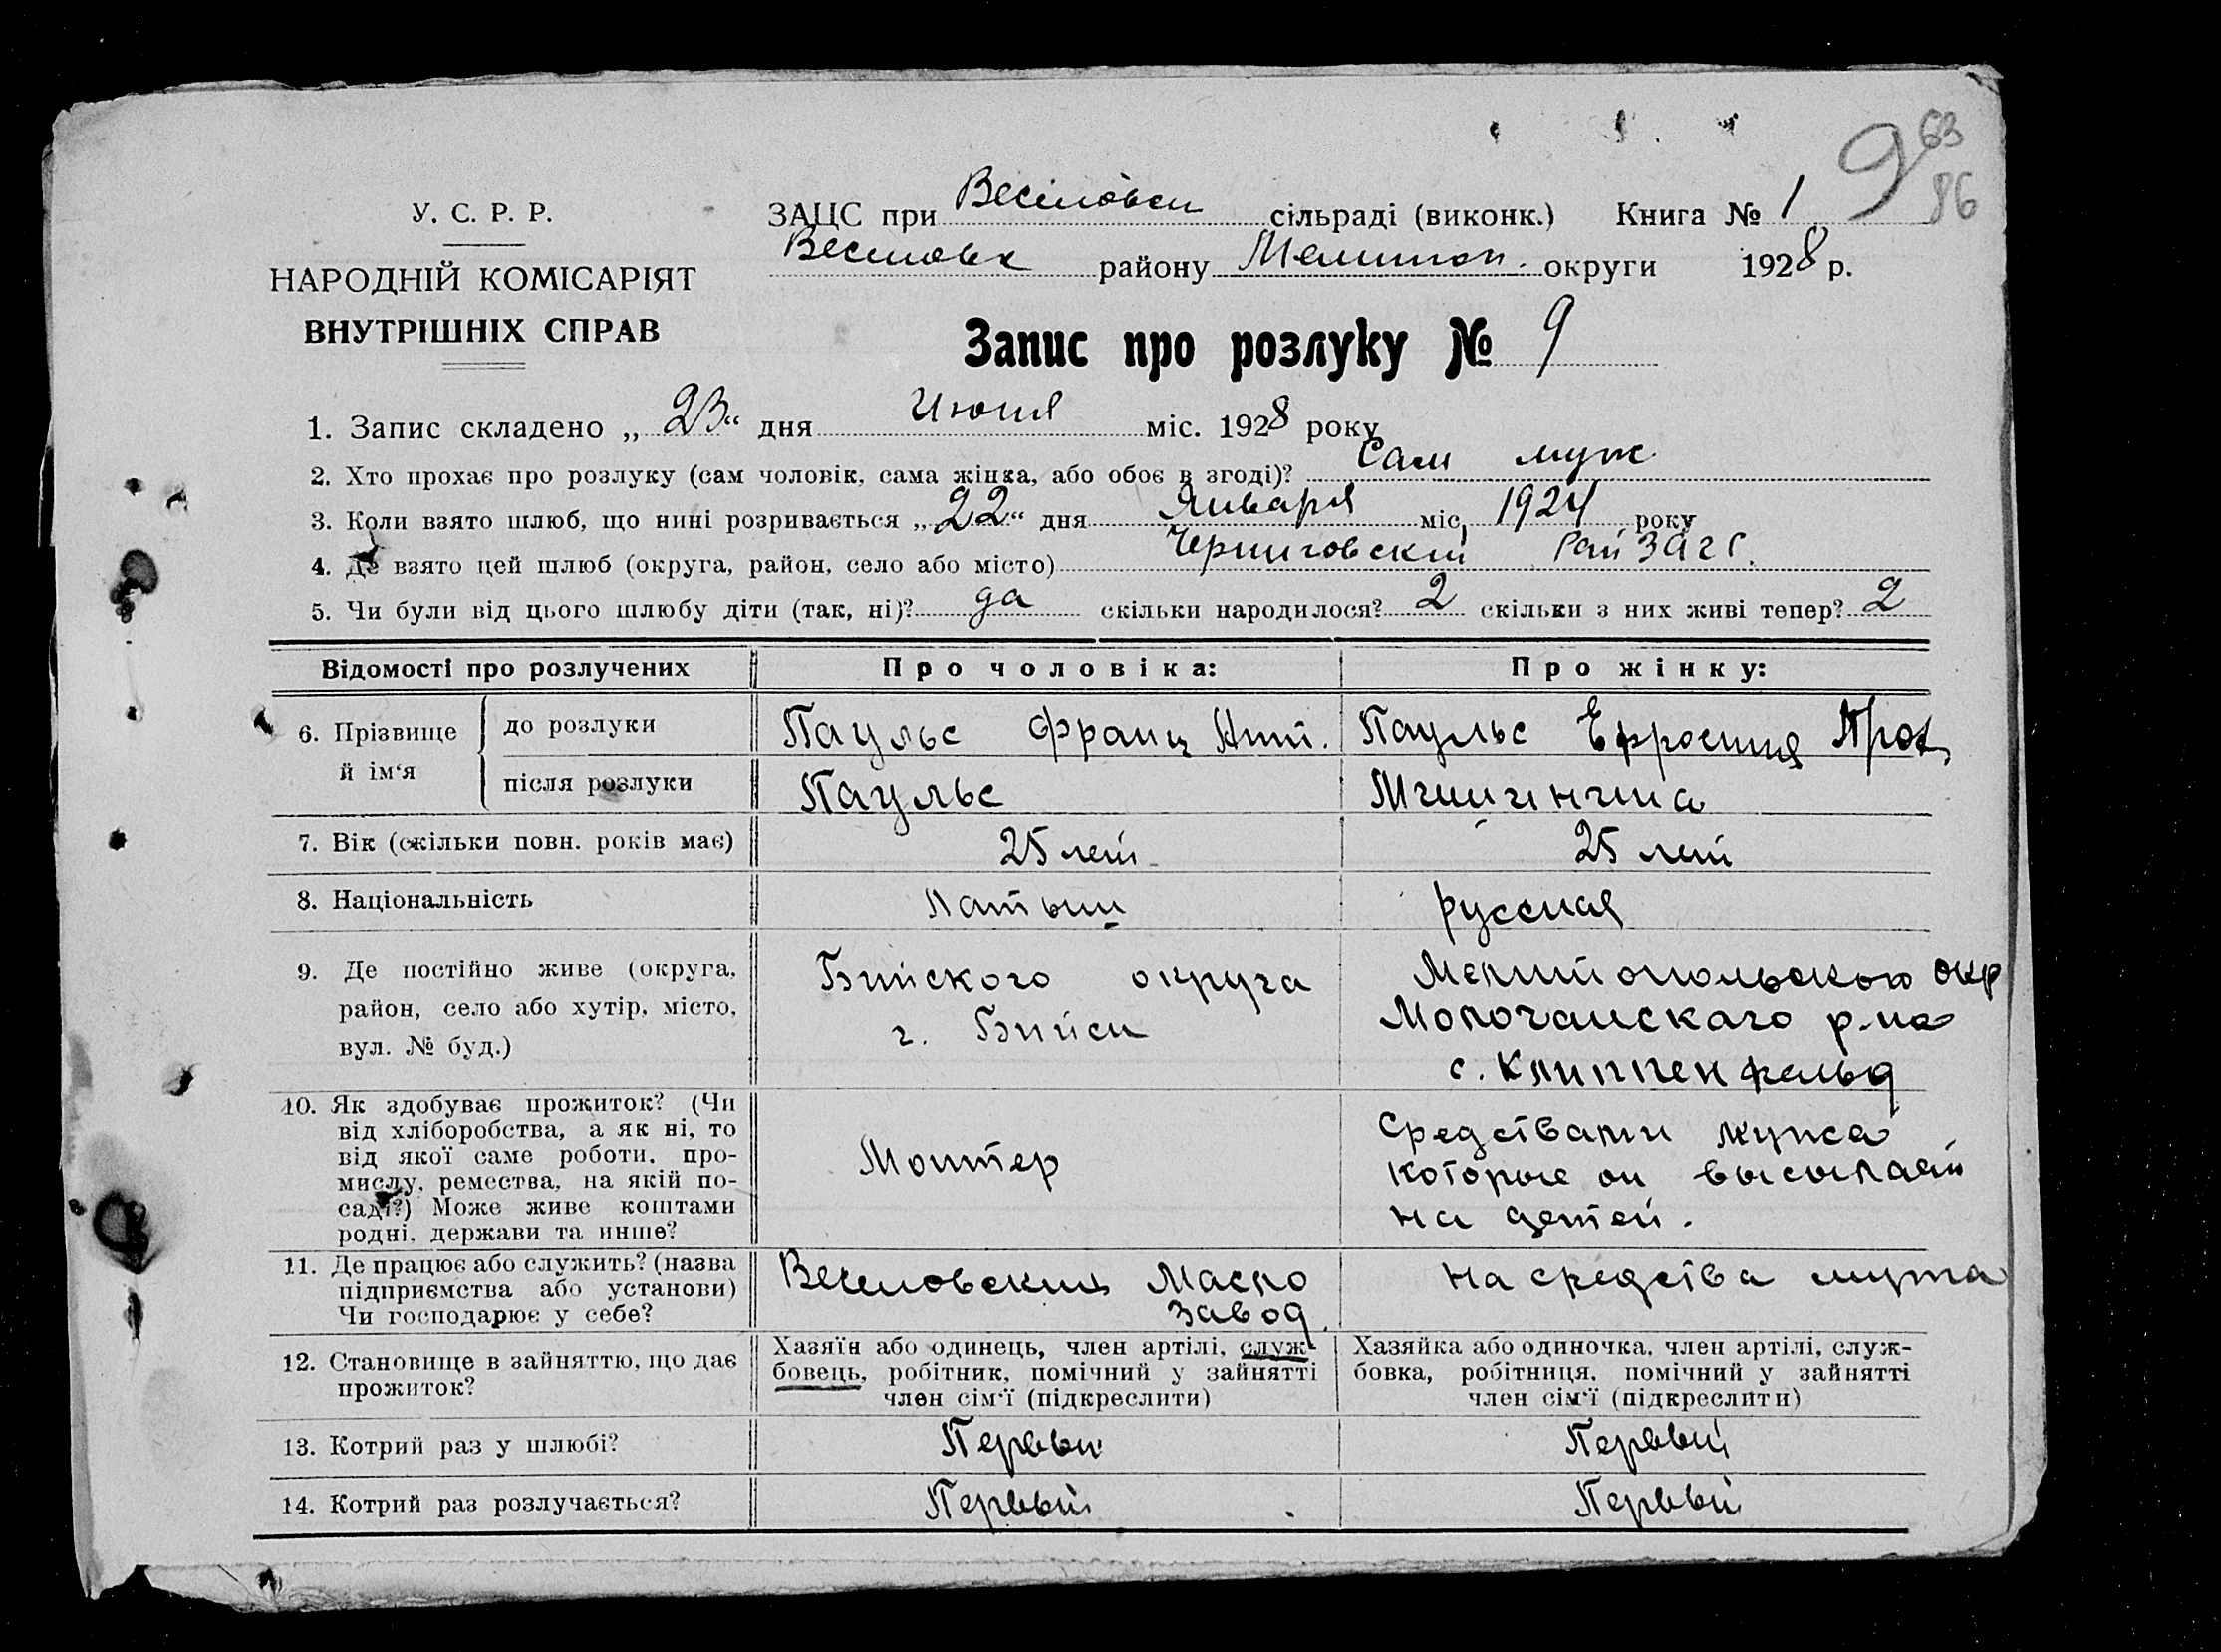 9 63
86
У. С. Р. Р.
ЗАЦС при Веселовск сільраді (виконк.) Книга № 1
Веселовск району Мелитоп. округи 1928 р.
НАРОДНІЙ КОМІСАРІЯТ
ВНУТРІШНІХ СПРАВ
Запис про розлуку № 9
1. Запис складено „23“ дня Июля міс. 1928 року
2. Хто прохає про розлуку (сам чоловік, сама жінка, або обоє в згоді)? Сам муж
3. Коли взято шлюб, що нині розривається „22“ дня Января міс. 1924 року
4. Де взято цей шлюб (округа, район, село або місто) Черниговский Рай ЗАГС.
5. Чи були від цього шлюбу діти (так, ні)? да скільки народилося? 2 скільки з них живі тепер? 2
Відомості про розлучених Про чоловіка: Про жінку:
6. Прізвище й ім‘я до розлуки Паульс Франц Паульс Ефросиния
після розлуки Паульс
7. Вік (скільки повн. років має) 25 лет 25 лет
8. Національність Латыш русская
9. Де постійно живе (округа, Бийского округа Мелитопольского окр
район, село або хутір, місто, г. Бийск Молочанскаго р-на
вул. № буд.) с. Клиппенфельд
10. Як здобуває прожиток? (Чи
від хліборобства, а як ні, то
від якої саме роботи, про-
мислу, ремества, на якій по-
саді?) Може живе коштами
родні, держави та инше?
Монтер
Средствами мужа
которые он высылает
на детей.
11. Де працює або служить? (назва
підприємства або установи)
Чи господарює у себе?
Веселовский Масло
завод.
На средства мужа
12. Становище в зайняттю, що дає
прожиток?
Хазяїн або одинець, член артілі, служ-
бовець, робітник, помічний у зайнятті
член сім‘ї (підкреслити)
Хазяйка або одиночка, член артілі, служ-
бовка, робітниця, помічний у зайнятті
член сім‘ї (підкреслити)
13. Котрий раз у шлюбі? Первый Первый
14. Котрий раз розлучається? Первый Первый